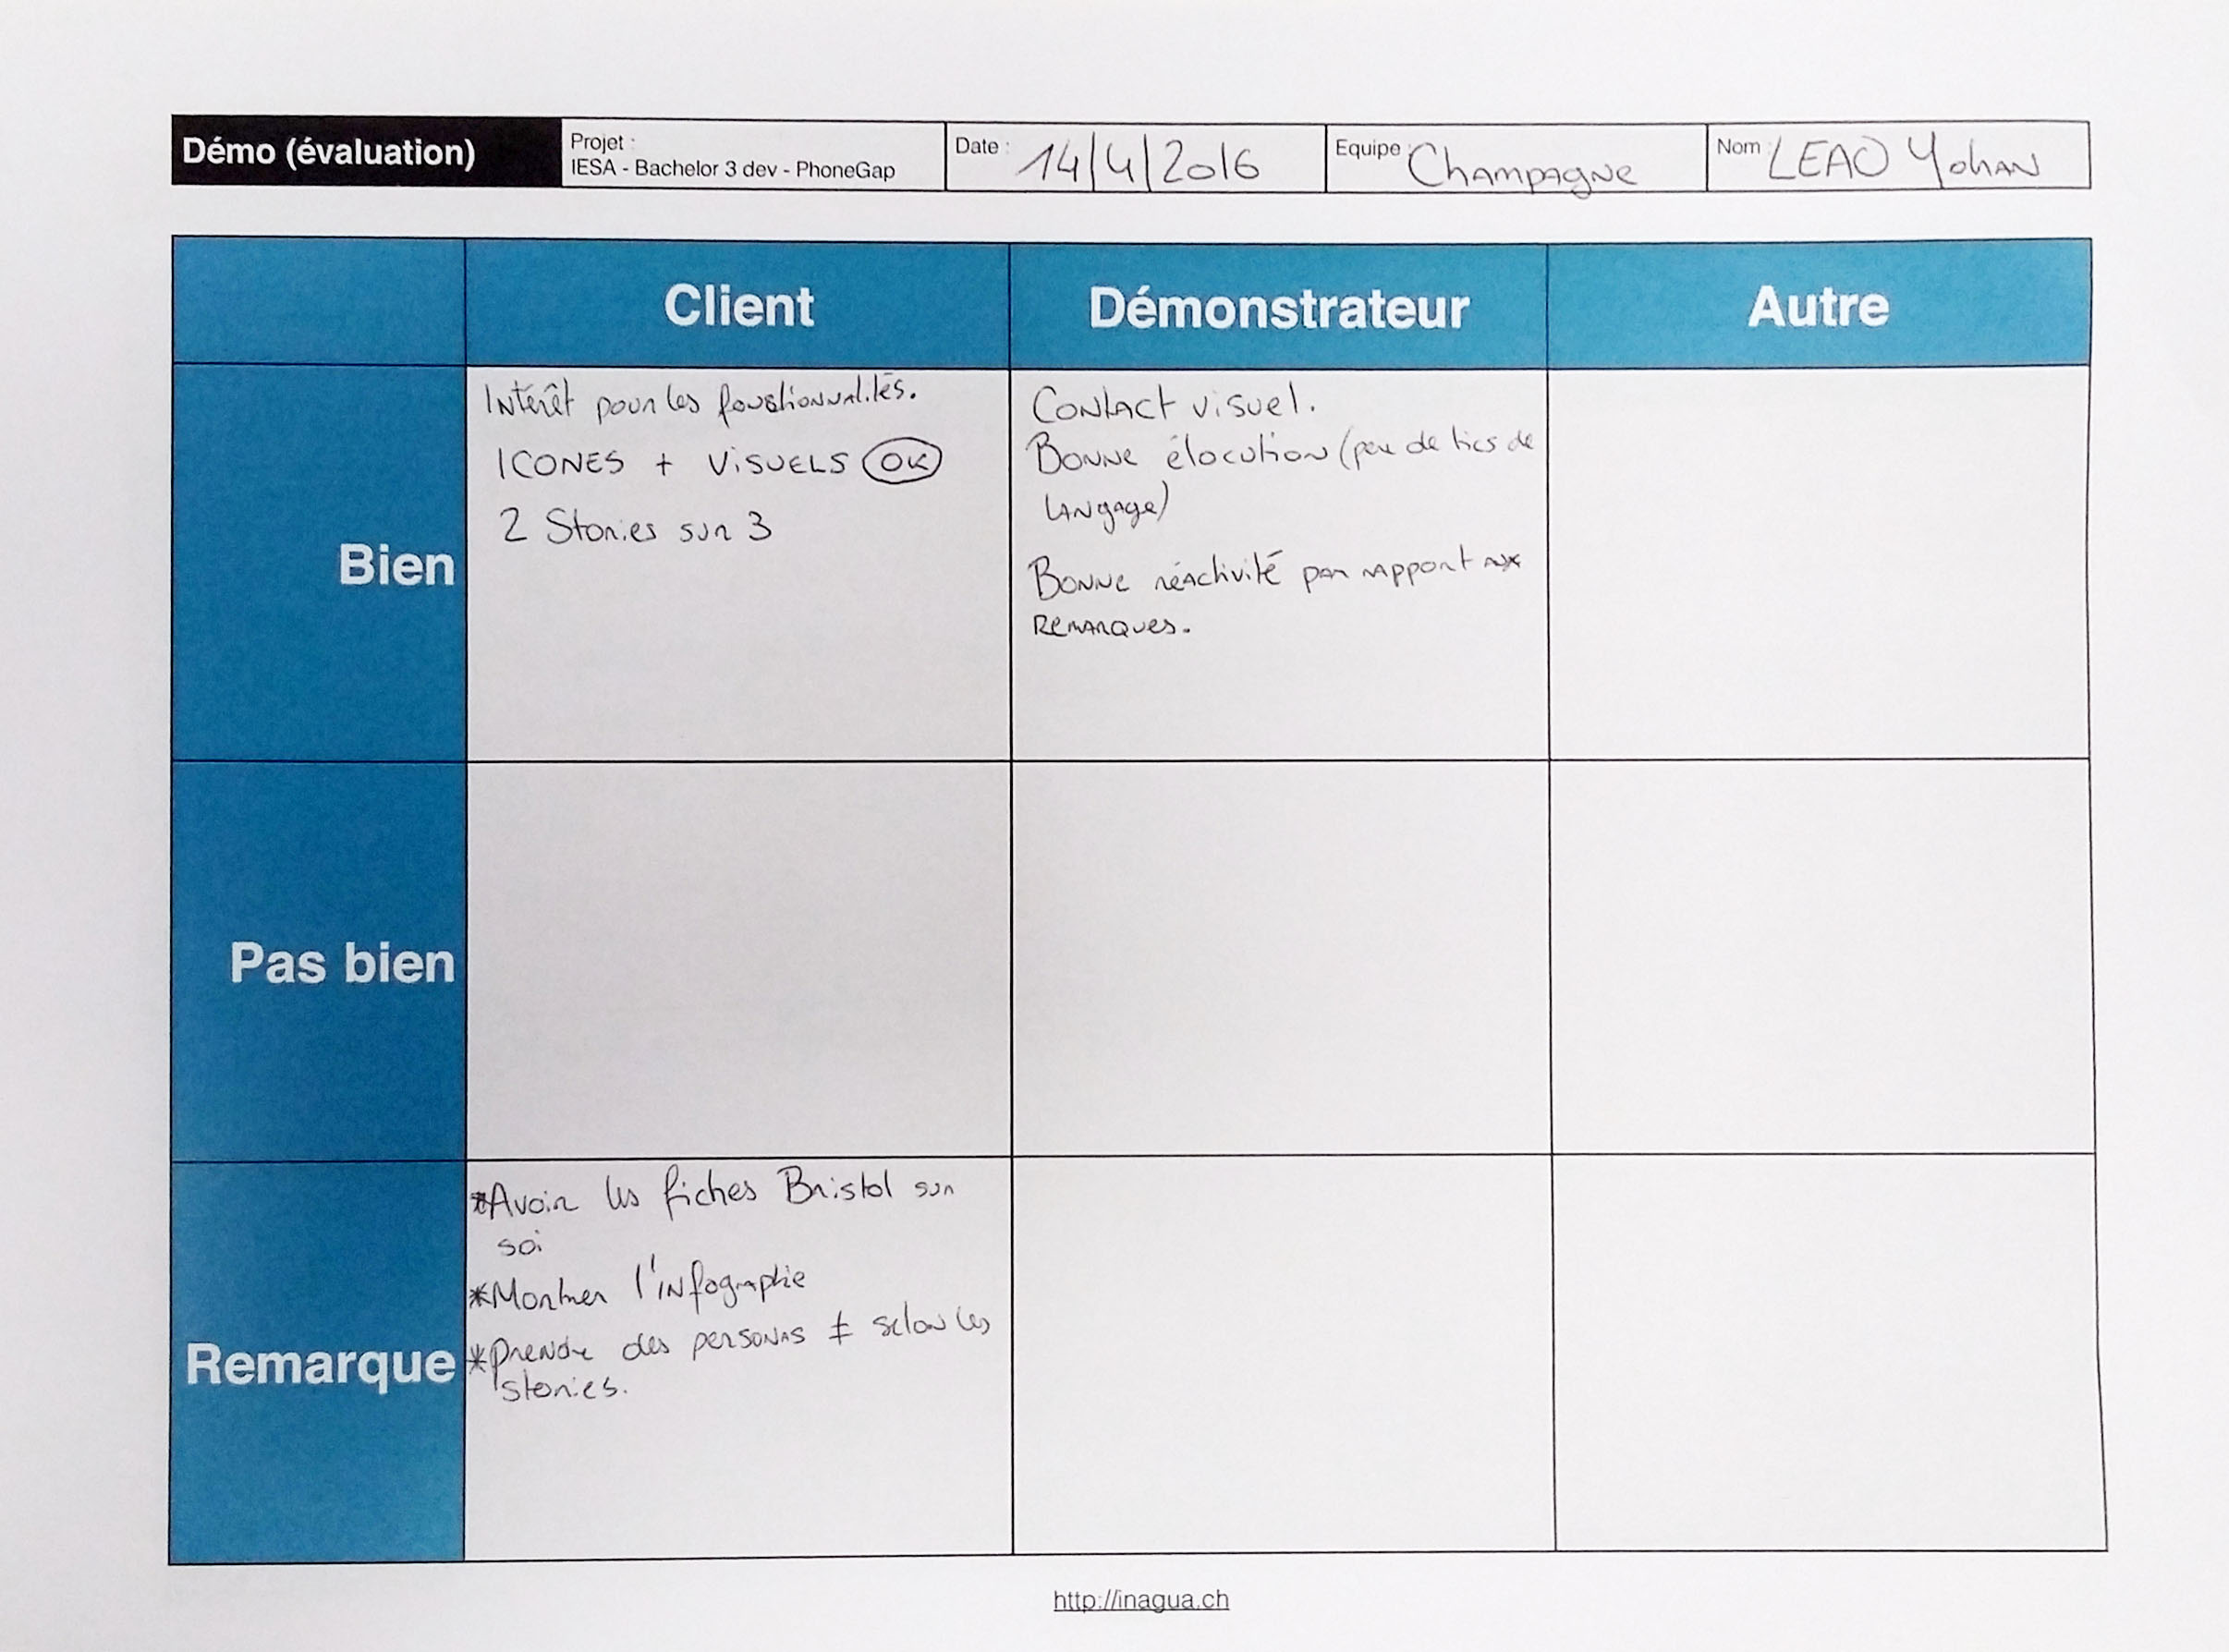 Démo (évaluation)
Projet :
IESA - Bachelor 3 dev - PhoneGap
Date : 14/4/2016
Equipe : Champagne
Nom : LEAO Yohan
Client
Démonstrateur
Autre
Bien
Intérêt pour les fonctionnalités.
ICONES + VISUELS OK
2 Stories sur 3
Contact visuel.
Bonne élocution (peu de tics de
langage)
Bonne réactivité par rapport aux
remarques.
Pas bien
Remarque
*Avoir les fiches Bristol sur
soi
*Montrer l'infographie
*Prendre des personas ≠ selon les
stories.
http://inagua.ch